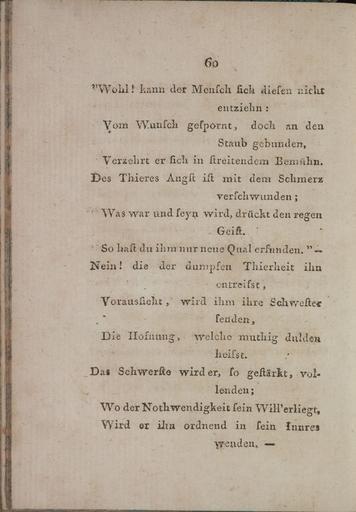 60
"Wohl! kann der Menſch ſich dieſen nicht
entziehn:
Vom Wunſch geſpornt, doch an den
Staub gebunden,
Verzehrt er ſich in ſtreitendem Bemühn.
Des Thieres Angſt iſt mit dem Schmerz
verſchwunden;
Was war und ſeyn wird, drückt den regen
Geiſt.
So haſt du ihm nur neue Qual erfunden." —
Nein! die der dumpfen Thierheit ihn
entreiſst,
Vorausſicht, wird ihm ihre Schweſter
ſenden,
Die Hofnung, welche muthig dulden
heiſst.
Das Schwerſte wird er, ſo geſtärkt, vol-
lenden;
Wo der Nothwendigkeit ſein Will' erliegt,
Wird er ihn ordnend in ſein Innres
wenden. —